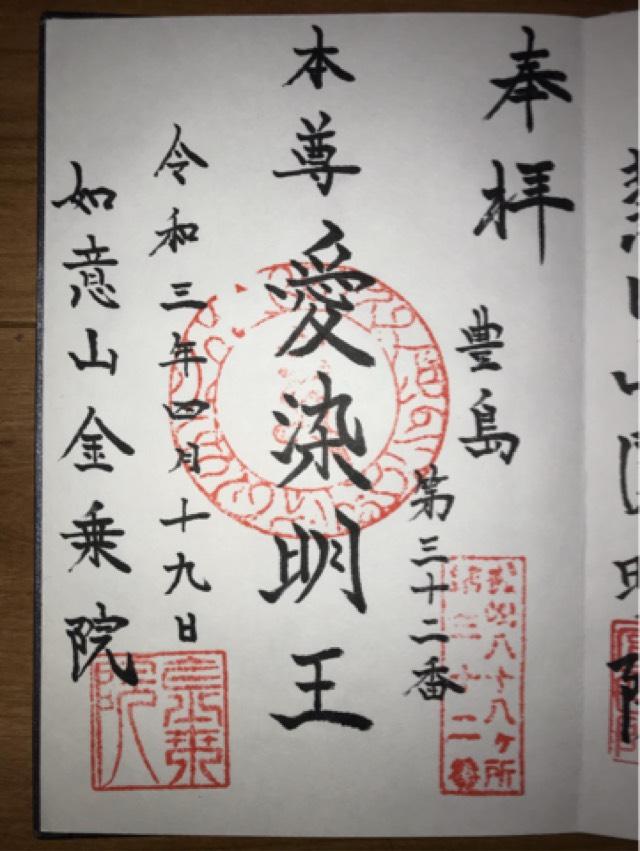 奉拝
豊島
第三十二番
八十八ヶ所
第三十二番
本尊 愛染明王
令和三年四月十九日
如意山金乗院